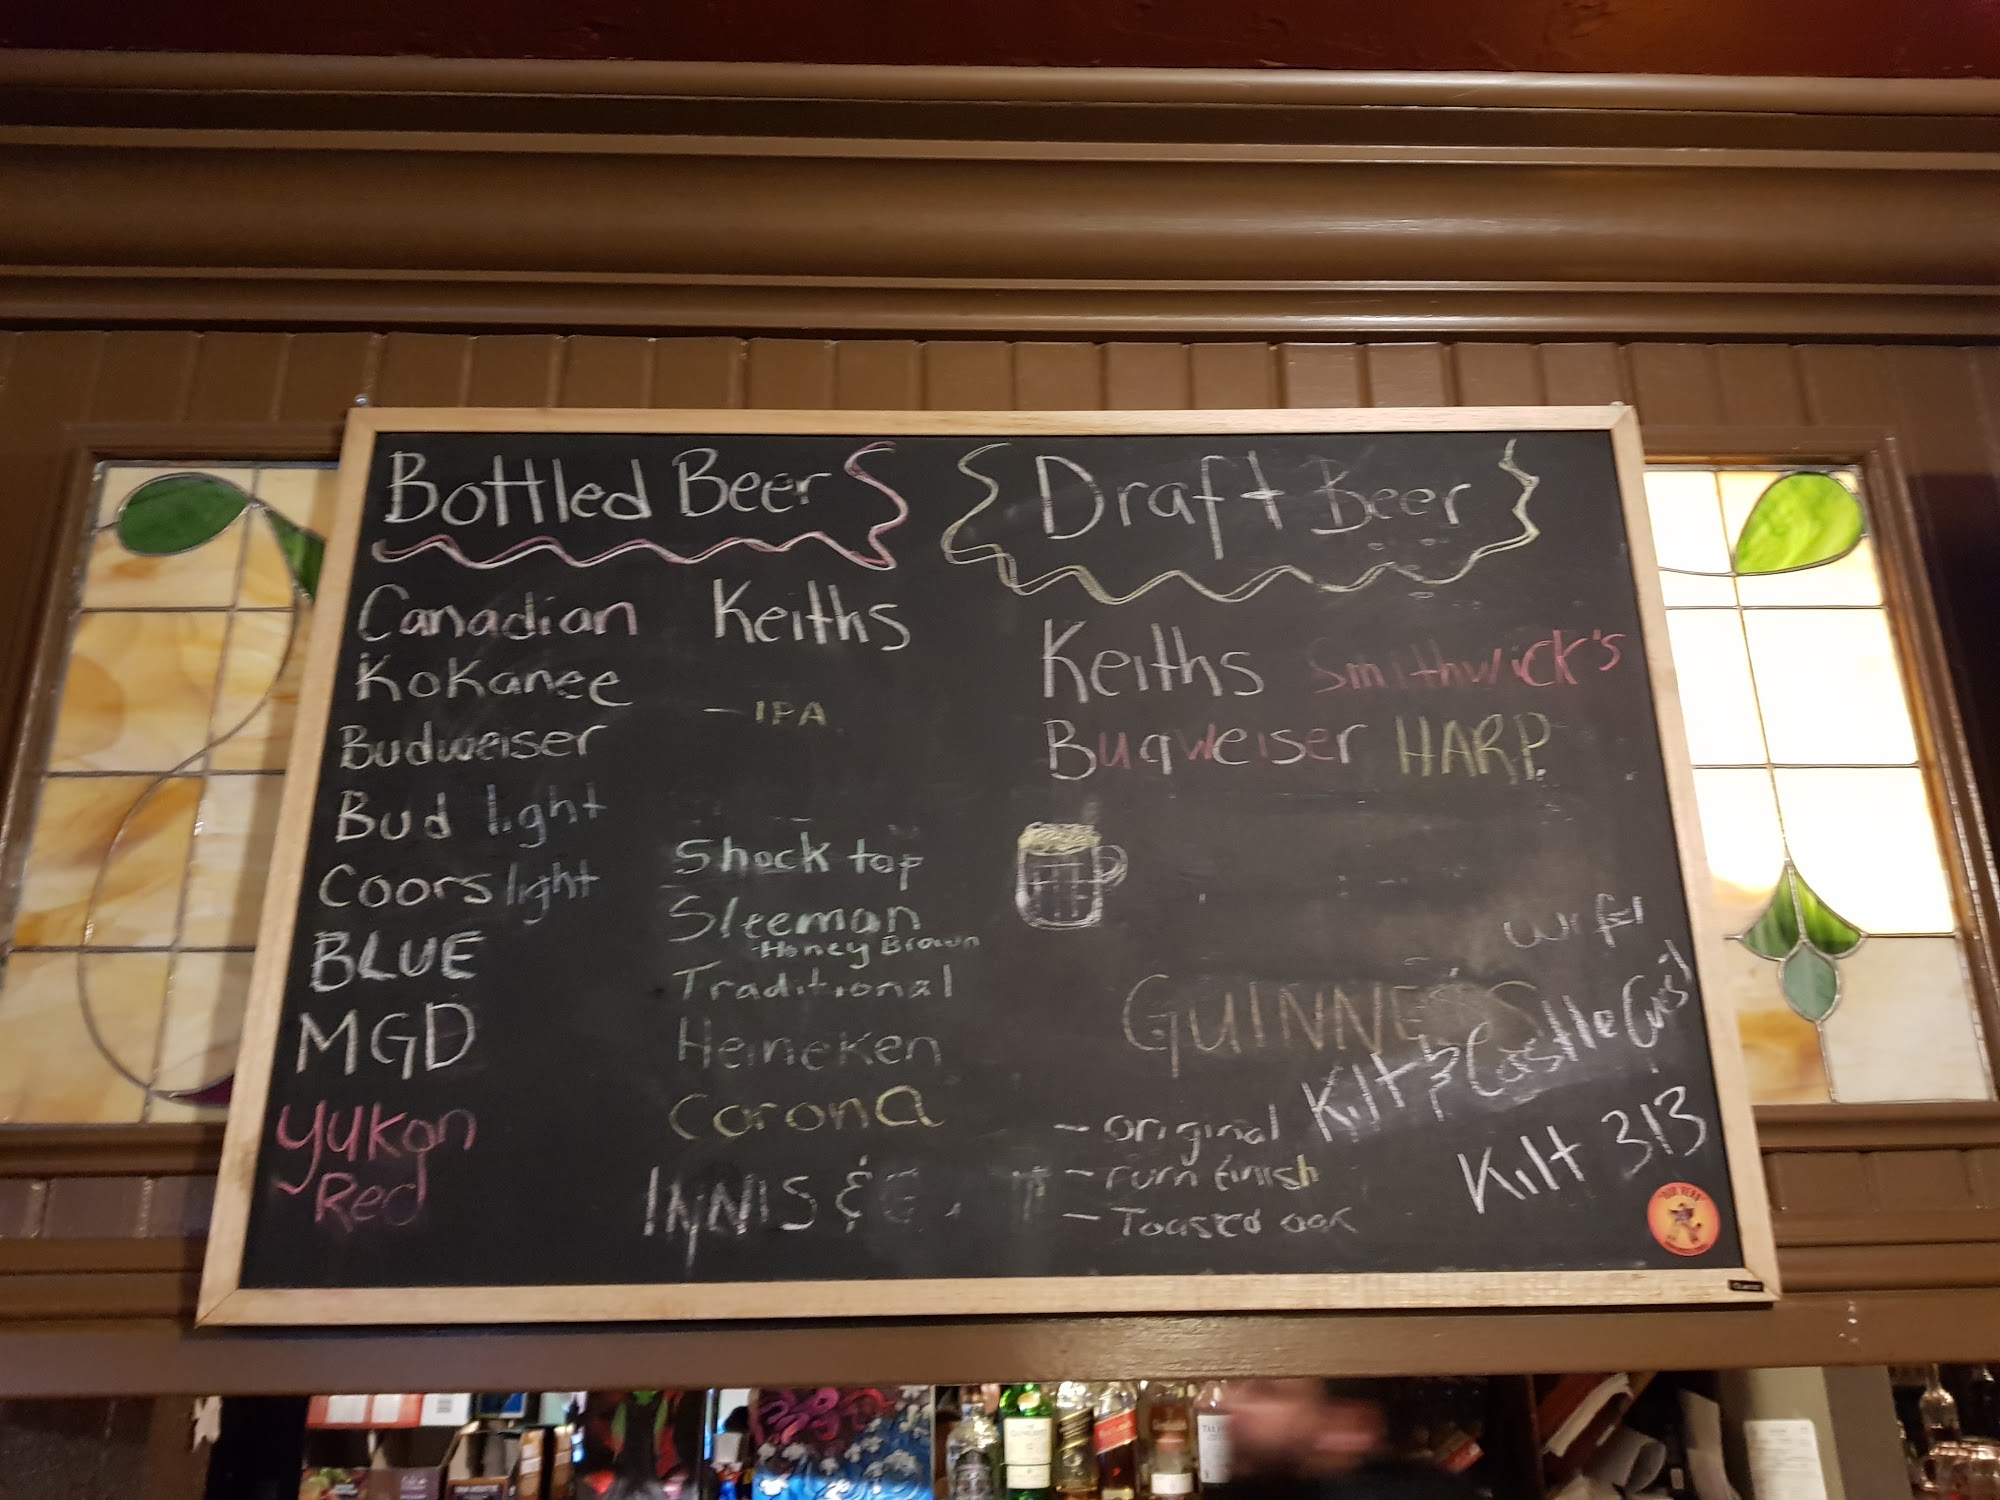 Bottled Beer
Canadian
Kokanee
Budweiser
Bud light
Coors light
BLUE
MGD
Yukon
Red
Keiths
- IPA
Shock top
Sleeman
Honey Brown
Traditional
Heineken
Corona
INNIS &
- original
- rum finish
- Toasted oak
Draft Beer
Keiths Smithwick's
Buqweiser HARP
GUINNESS
wifi
Kilt & Castle Guest
Kilt 313